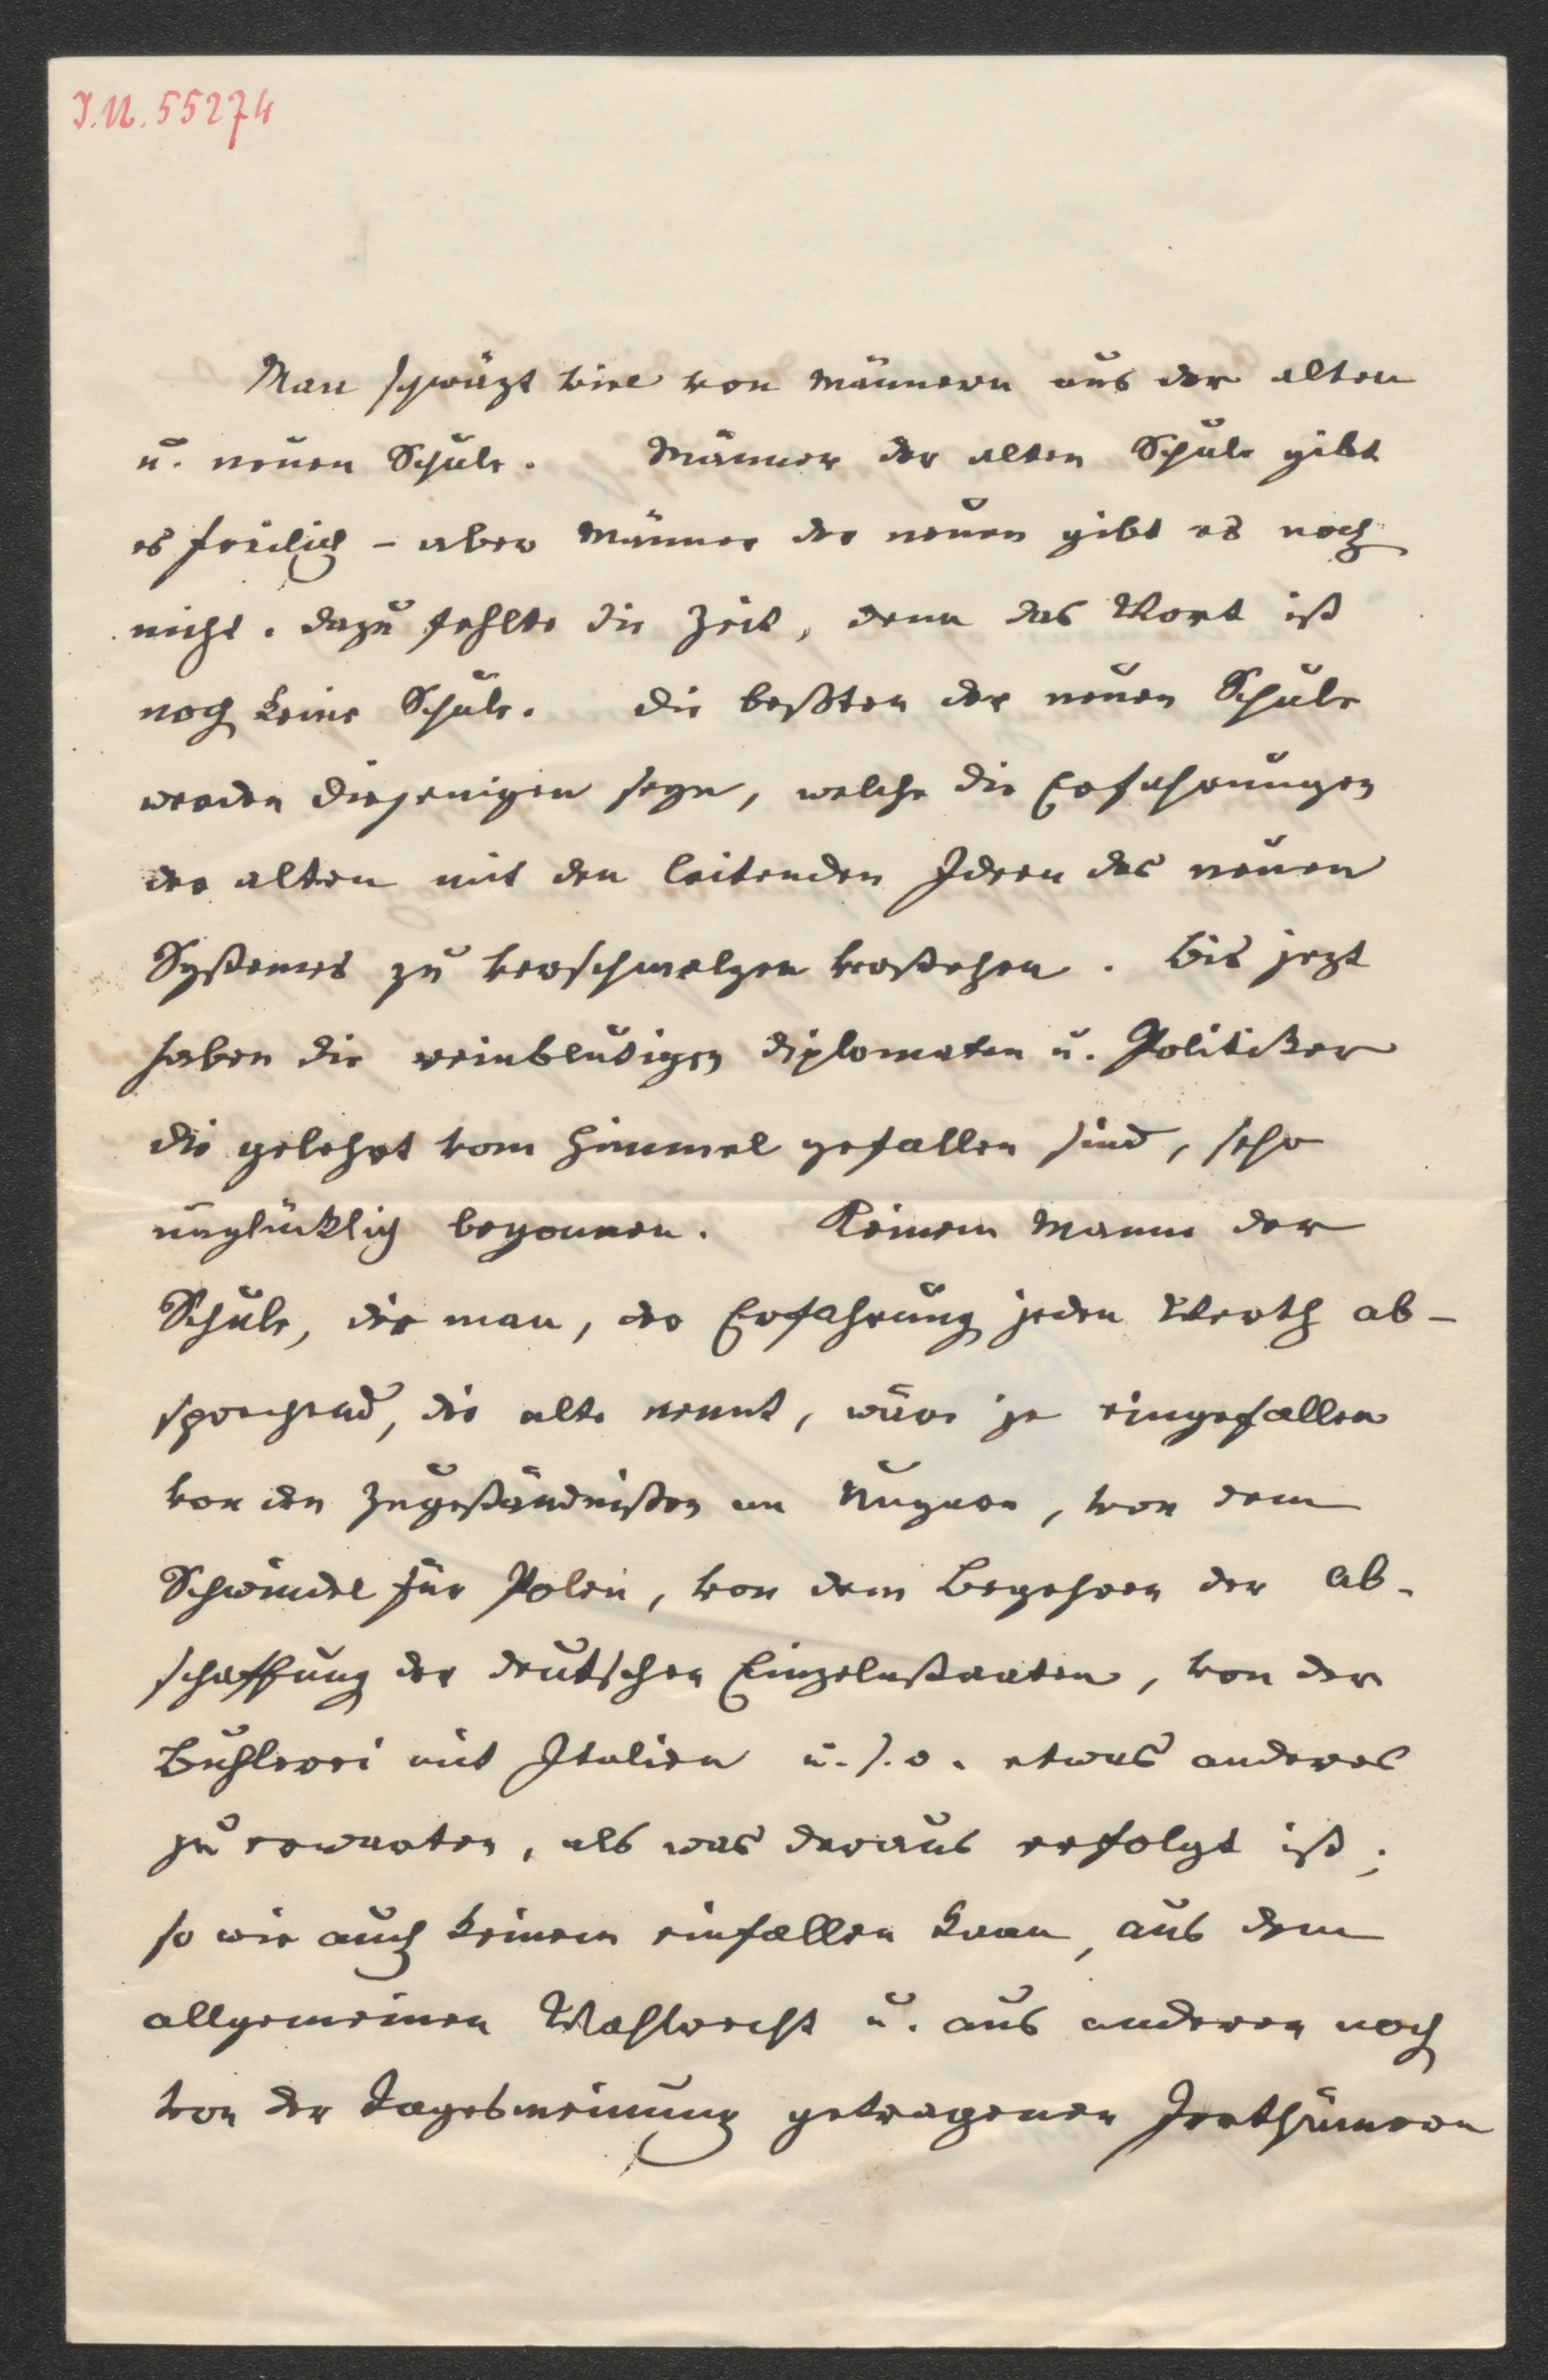 I.N. 55274
Man schwäzt viel von Männern aus der alten
u. neuen Schule. Männer der alten Schule gibt
es freilich – aber Männer der neuen gibt es noch
nicht. dazu fehlte die Zeit, denn das Wort ist
noch keine Schule. die beßten der neuen Schule
werden diejenigen seyn, welche die Erfahrungen
der alten mit den leitenden Ideen des neuen
Systemes zu verschmelzen verstehen. Bis jezt
haben die reinblutigen diplomaten u. Politiker
die gelehrt vom Himmel gefallen sind, sehr
unglücklich begonnen. Keinem Manne der
Schule, die man, der Erfahrung jeden Werth ab-
sprechend, die alte nennt, wäre je eingefallen
von den Zugeständnißen an Ungarn, von dem
Schwindel für Polen, von dem Begehren der Ab-
schaffung der deutschen Einzelnstaaten, von der
Buhlerei mit Italien u. s. v. etwas anderes
zu erwarten, als was daraus erfolgt ist;
so wie auch keinem einfallen kann, aus dem
allgemeinen Wahlrecht u. aus anderen noch
von der Tagesmeinung getragenen Irrthümern